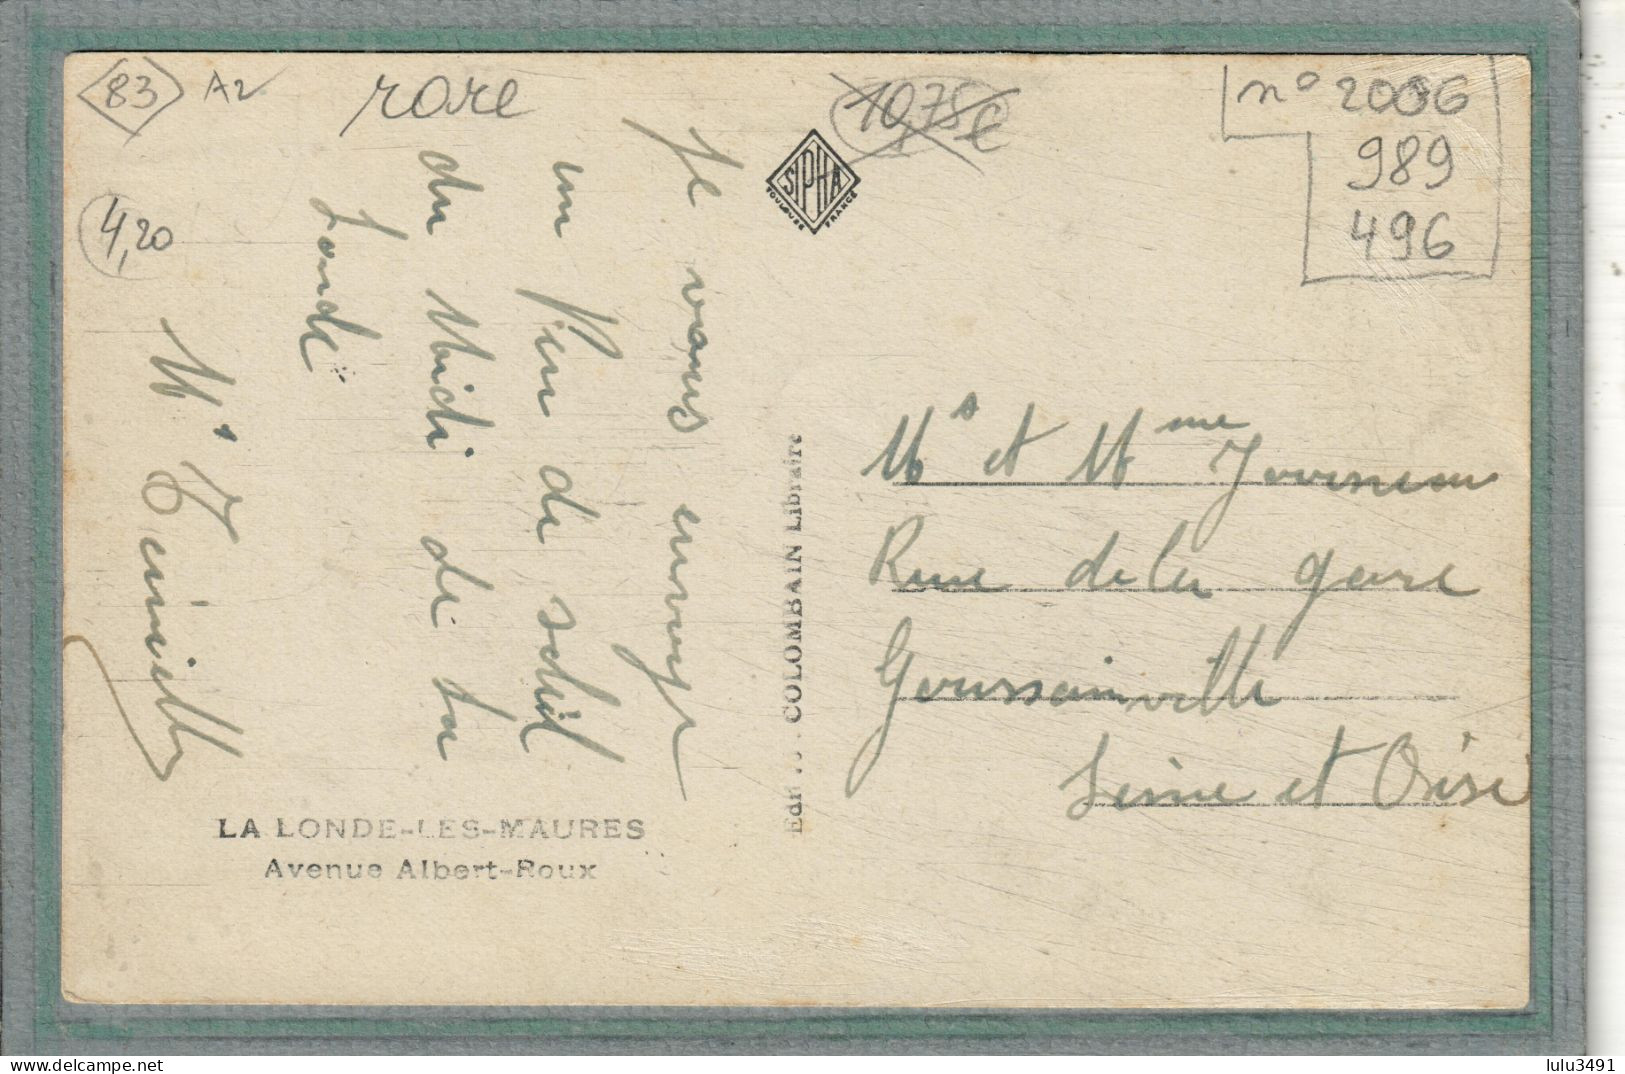 83 A2
rare
10,75€
n° 2006
989
496
4,20
SIPHA
TOULOUSE FRANCE
Je vous envoye
un Rien de soleil
du Midi de La
Londe
Mr T
LA LONDE-LES-MAURES
Avenue Albert-Roux
COLOMBAIN Libraire
Ms et Mme Journeau
Rue de la gare
Goussainville
Seine et Oise
delcampe.net
lulu3491